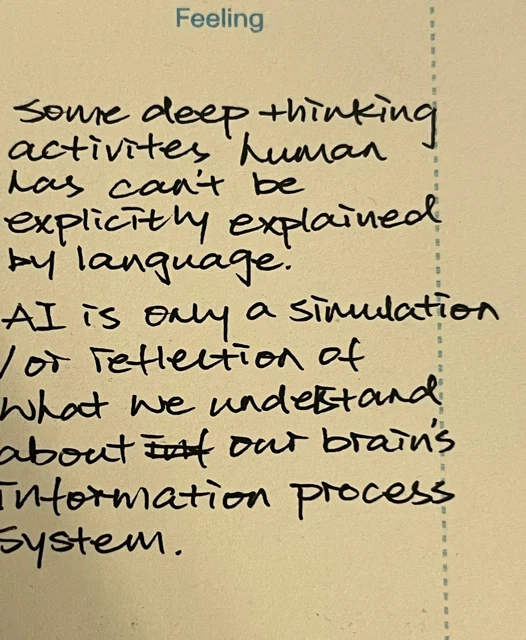 Feeling
some deep thinking
activites human
has can't be
explicitly explained
by language.
AI is only a simulation
/or reflection of
what we understand
about our brain's
information process
system.